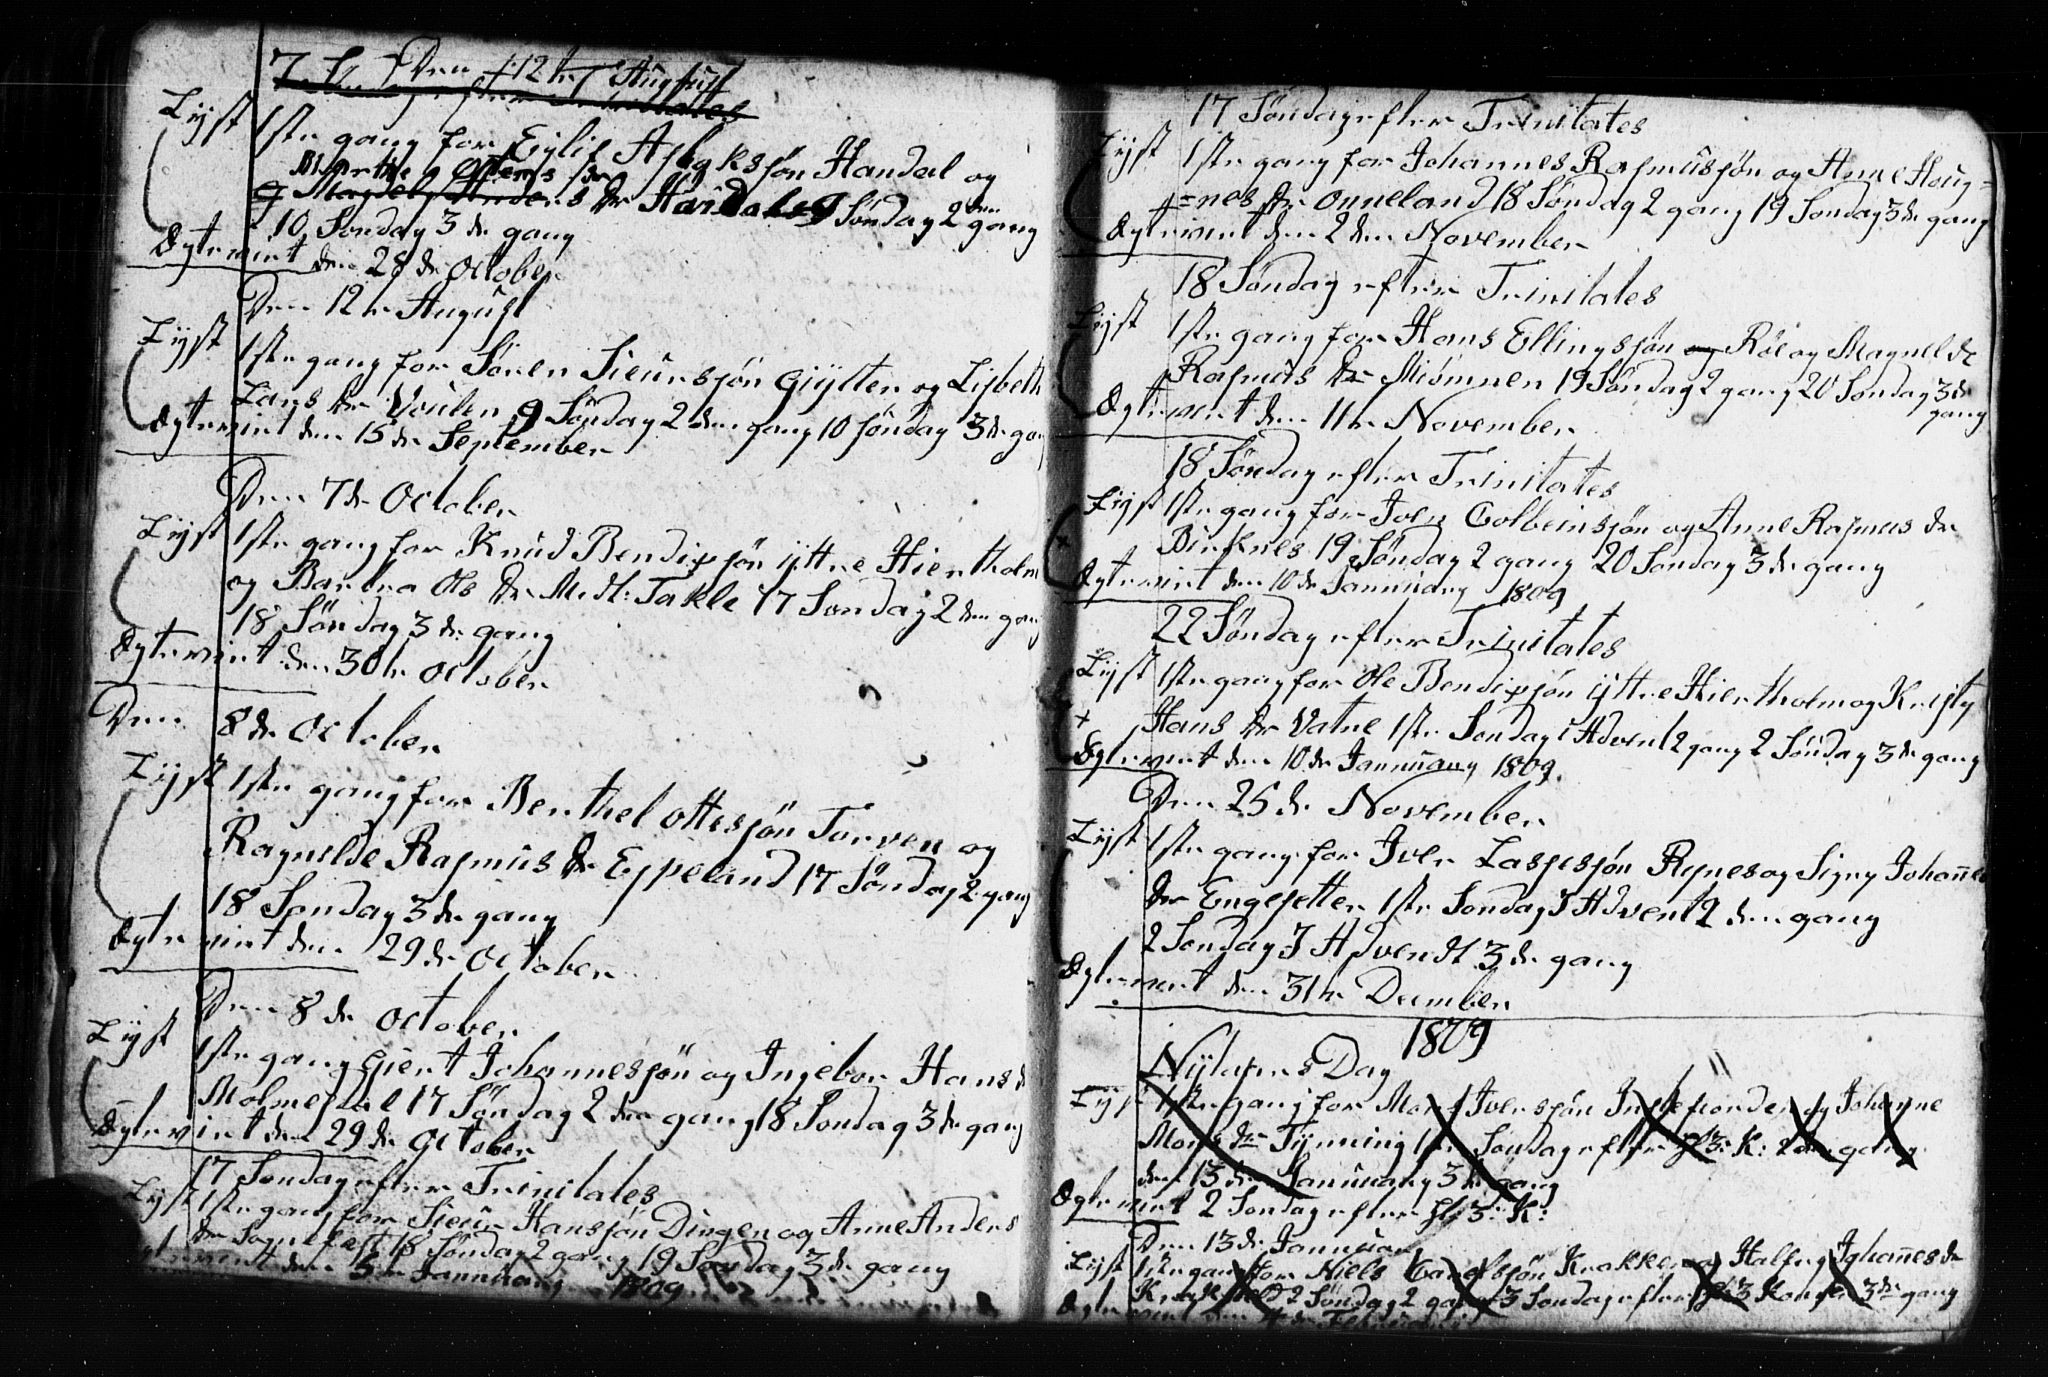 Den 12te August
7 S efter Trinitates
Lyst 1ste gang for Eylif Aslaksøn Handal og
Marthe Ottens dr
Magdel Anders dr Haidal 9 Søndag 2den gang
10 Søndag 3de gang
Ægteviet den 28de October
Den 12te August
Lyst 1ste gang for Sören Sieursøn Giylten og Lisbeth
Lars dr Voulen 9 Søndag 2den gang 10 Søndag 3de gang
Ægteviet den 15de September
Den 7de October
Lyst 1ste gang for Knud Bendixsøn yttre Hiertholm
og Barbra Ols dr M: Takle 17 Søndag 2den gang
18 Søndag 3de gang
Ægteviet den 30te October
Den 8de October
Lyst 1ste gang for Benthel Ottesøn Torven og
Ragnilde Rasmus dr Espeland 17 Søndag 2 gang
18 Søndag 3de gang
Ægteviet den 29de October
Den 8de October
Lyst 1ste gang Giert Johannessøn og Ingebor Hans d
Molmesdal 17 Søndag 2den gang 18 Søndag 3de gang
Ægteviet den 29de October
17 Søndag efter Trinitates
Lyst 1ste gang for Sieur Hansøn Dingen og Anne Anders
dr Sognefæst 18 Søndag 2 gang 19 Søndag 3de gang
Ægteviet den 5te Januuary 1809
17 Søndag efter Trinitates
Lyst 1ste gang for Johannes Rasmussøn og Anne Houg=
=nes dr Onneland 18 Søndag 2 gang 19 Søndag 3de gang
Ægteviet den 2den November
18 Søndag efter Trinitates
Lyst 1ste gang for Hans Ellingsøn og Röe og Magnelde
Rasmus dr Miömnen 19 Søndag 2 gang 20 Søndag 3de
gang
Ægteviet den 11te November
18 Søndag efter Trinitates
Lyst 1ste gang for Iver Colbeinsøn og Anne Rasmus dr
Birknes 19 Søndag 2 gang 20 Søndag 3de gang
Ægteviet den 10de Januuary 1809
22 Søndag efter Trinitates
Lyst 1ste gang for Ole Bendixsøn yttre Hiertholm og Kristy
Hans dr Vatne 1ste Søndag i Advent 2 gang 2 Søndag 3de gang
Ægteviet den 10de Januuary 1809.
Den 25de November
Lyst 1ste gang for Iver Lassesøn Rysnes og Signy Johanne
dr Engesetter 1ste Søndag I Advent 2den gang
2 Søndag I Advendt 3de gang
Ægteviet den 31te December
1809
Nytaars Dag
Lyst 1ste gang for Mons Iversøn Indrefiorden og Johanne
Mons dr Tynning 1ste Søndag efter H: 3: K: 2den gang
den 13de Januuary 3de gang
Ægteviet 2 Søndag efter H: 3: K:
Den 13de Januuar
Lyst 1ste gang for Niels Carelsøn Krakken og Halfry Johannes dr
2 Søndag 2 gang 3 Søndag efter H: 3 Konger 3de gang
Ægteviet den